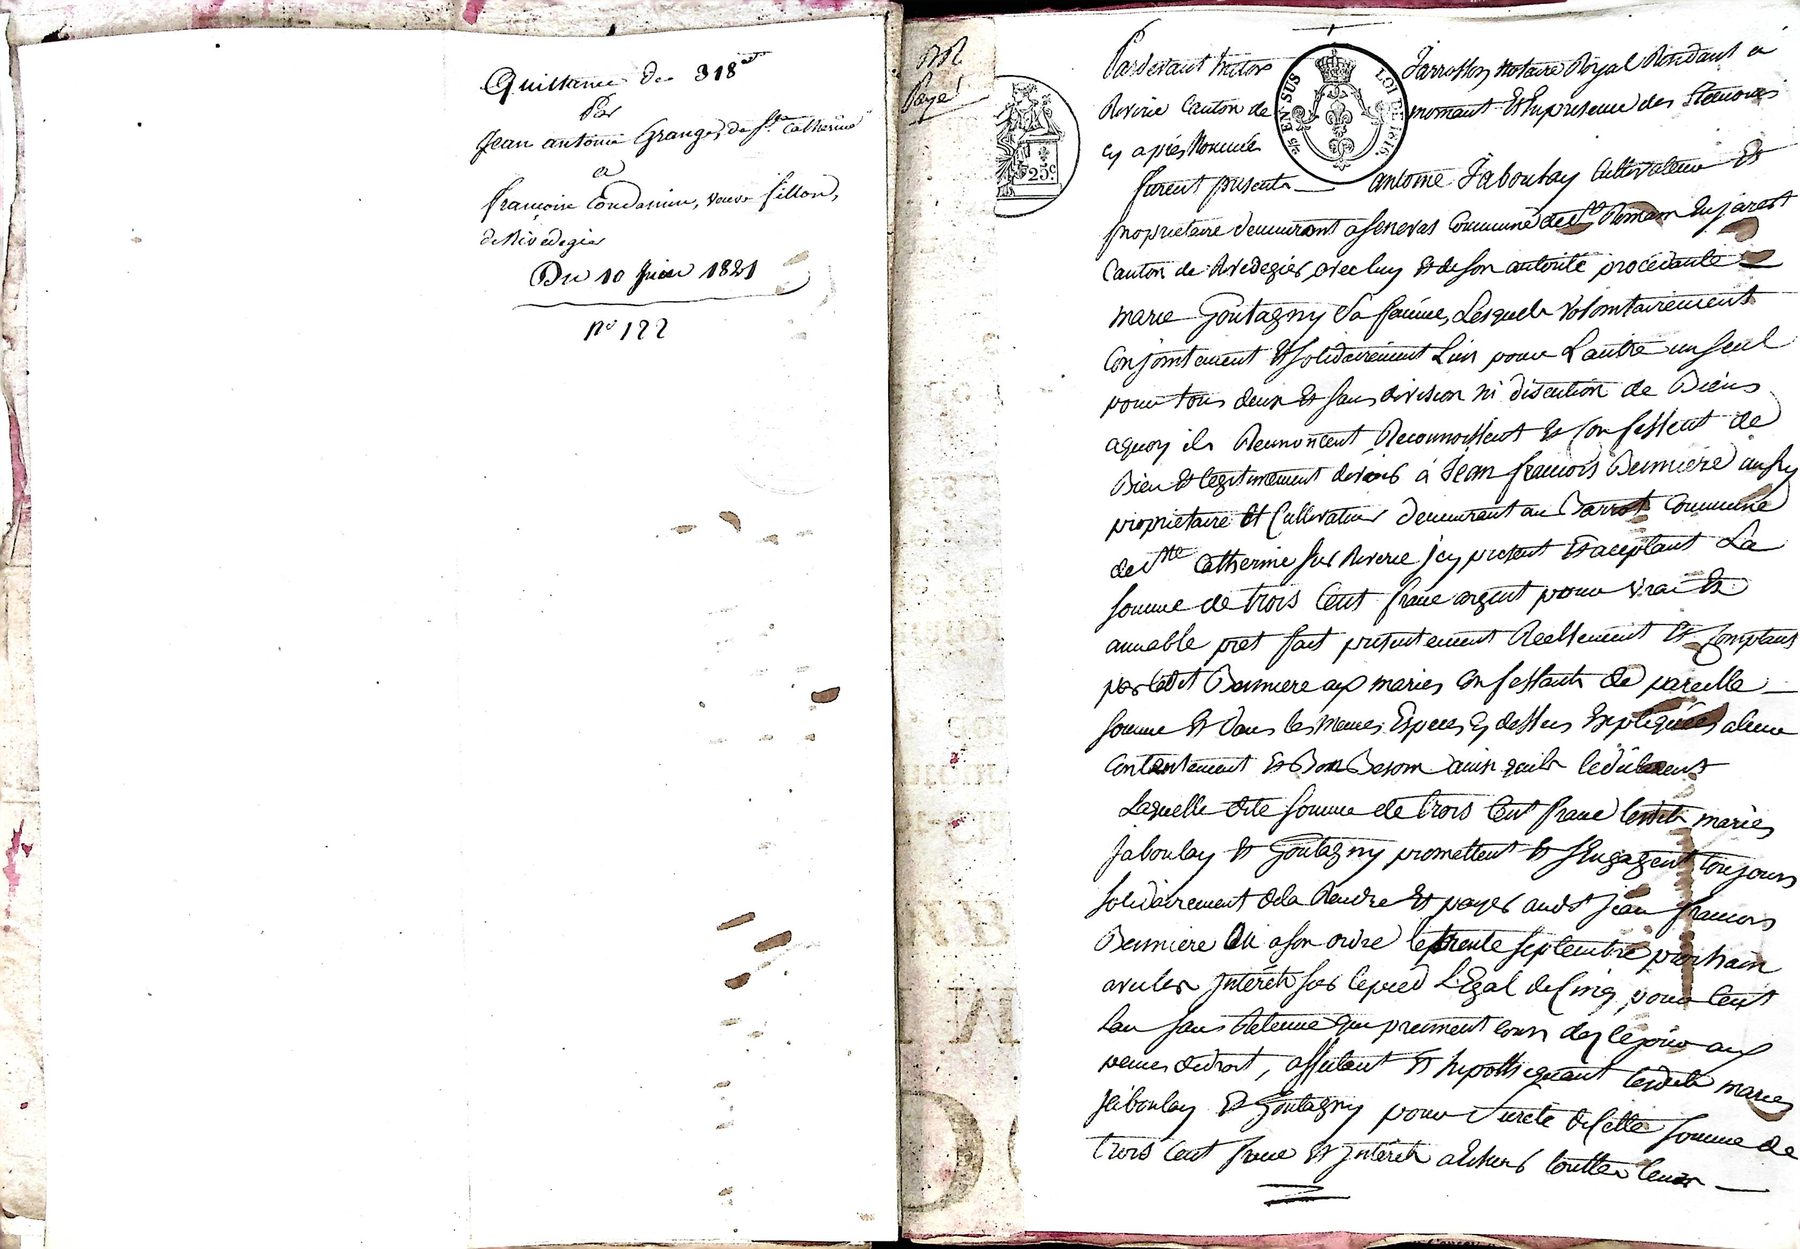 Quittance de 318
Par
Jean antoine Grange, de Ste Catherine
a
françoise Condamin, veuve fillon,
de Rivedegier
Du 10 Juin 1821
no 122
M
Payé
EN SUS
LOI DE 1816.
25c.
Pardevant victor Jarrosson notaire Royal Résidant à
Riverie Canton de mornant Et En presence des Temoins
cy après Nommés
furent présents antoine Jaboulay Cultivateur Et
proprietaire demeurant a senevas Commune de St Romain En jarest
Canton de Rivedegier, avec luy Et de son autorité procédante
marie Goutagny Sa femme, Lesquels volontairement
Conjointement Et solidairement L'un pour L'autre un seul
pour tous deux Et sans division ni discution de Biens
aquoy ils Renoncent, Reconnoissent Et Confessent de
Bien Et legitimement devoir à Jean françois Bernière aussy
proprietaire Et Cultivateur demeurant au Barrot Commune
de Ste Catherine sur Riverie jcy present Et aceptant La
somme de trois Cent franc argent pour vrai Et
amiable pret fait présentement Réellement Et Comptant
par ledit Berniere aux mariés Confessants de pareille
somme Et dans les memes Especes cy dessus Expliquées aleur
Contentement Et Bon Besoin ainsi quils le déclarent
Laquelle dite somme de trois Cent franc lesdits mariés
Jaboulay Et Goutagny promettent Et s'Engagent toujours
solidairement de la Rendre Et payer audt jean francois
Berniere Ou a son ordre le trente septembre prochain
avec les Intérêts sur le pied L'Egal de Cinq pour Cent
L'an sans Retenue qui prennent cours dez le jour aux
peines de droit, affectant Et hypothequant lesdits mariés
Jaboulay Et Goutagny pour Sureté de Cette somme de
trois Cent franc Et Intérêts a Echeoir toutes leurs